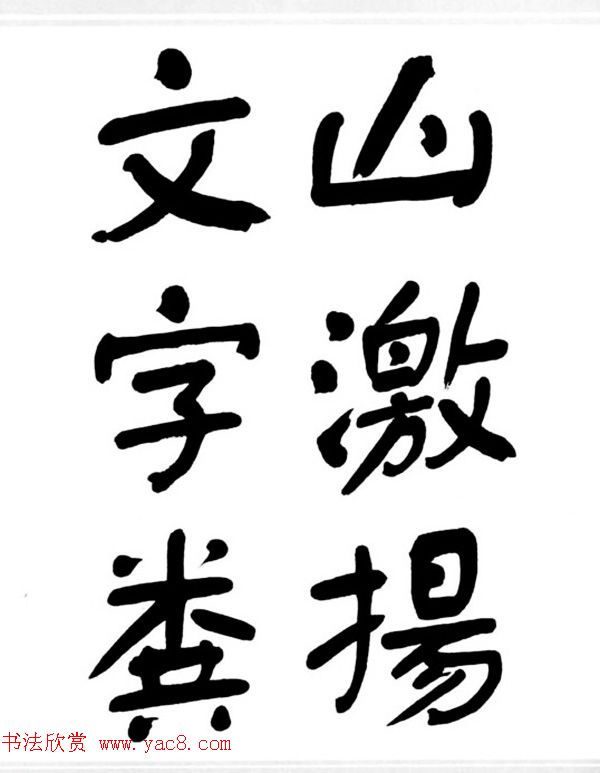 山激揚
文字糞
书法欣赏 www.yac8.com